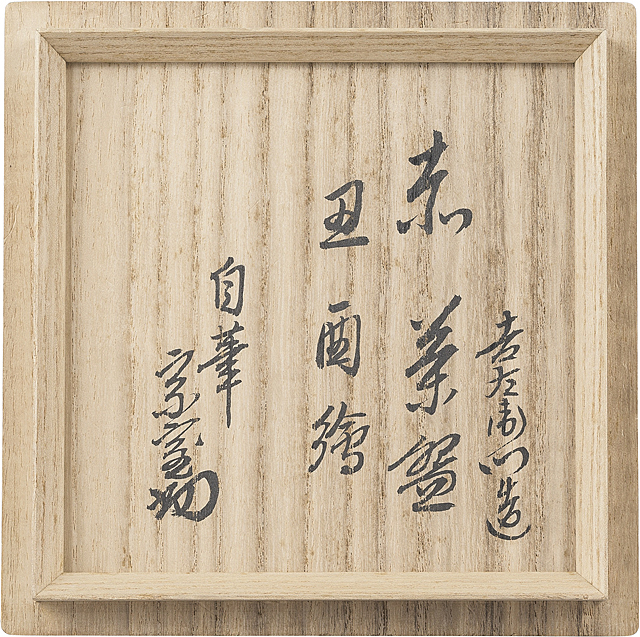 吉左衛門造
赤 茶盌
丑酉繪
自筆
宗室